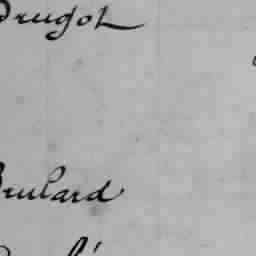 Drugot
Brulard